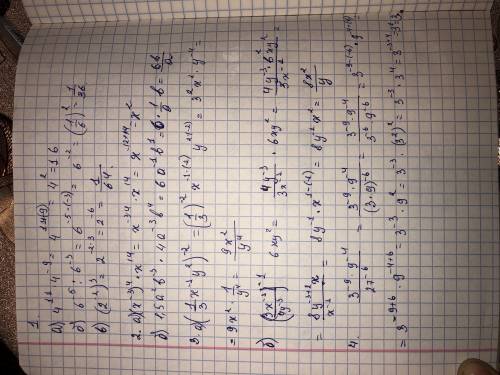 1.
а) 4¹¹ · 4⁻⁹ = 4¹¹⁺⁽⁻⁹⁾ = 4² = 16
б) 6⁻⁵ : 6⁻³ = 6⁻⁵⁻⁽⁻³⁾ = 6⁻² = (1/6)² = 1/36
в) (2⁻²)³ = 2⁻²·³ = 2⁻⁶ = 1/64.
2. а) (x⁻³)⁴ · x¹⁴ = x⁻³·⁴ · x¹⁴ = x⁻¹²⁺¹⁴ = x²
б) 1,5a²b⁻³ · 4a⁻³b⁴ = 6a⁻¹b¹ = 6 · 1/a · b = 6b/a
3. а) (1/3 x⁻¹y²)⁻² = (1/3)⁻² x⁻¹·⁽⁻²⁾ y²·⁽⁻²⁾ = 3² x² y⁻⁴ =
= 9x² · 1/y⁴ = 9x²/y⁴
б) (3x⁻²/4y⁻³)⁻¹ · 6xy² = 4y⁻³/3x⁻² · 6xy² = 4y⁻³ · 6xy²/3x⁻² =
= 8y⁻³⁺²x/x⁻² = 8y⁻¹ x¹⁻⁽⁻²⁾ = 8y⁻¹x³ = 8x²/y
4. 3⁻⁹ · 9⁻⁴/27⁻⁶ = 3⁻⁹ · 9⁻⁴/(3 · 9)⁻⁶ = 3⁻⁹ · 9⁻⁴/3⁻⁶ · 9⁻⁶ = 3⁻⁹⁻⁽⁻⁶⁾ · 9⁻⁴⁻⁽⁻⁶⁾ =
= 3⁻⁹⁺⁶ · 9⁻⁴⁺⁶ = 3⁻³ · 9² = 3⁻³ · (3²)² = 3⁻³ · 3⁴ = 3⁻³⁺⁴ = 3¹ = 3.